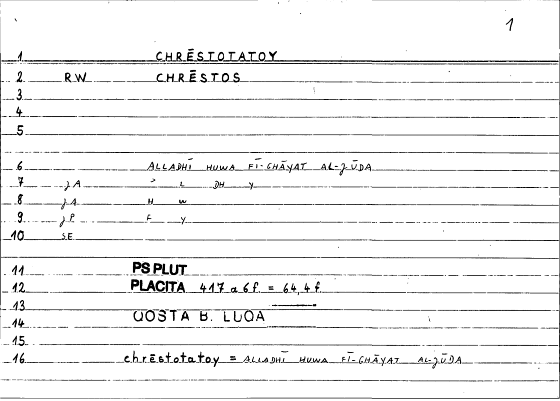 1
1 CHRĒSTOTATOY
2 RW CHRĒSTOS
3
4
5
6 ALLADHĪ HUWA FĪ-GHĀYAT AL-ǦŪDA
7 ʾ L DH Y
8 H W
9 F Y
10 SE
11 PS PLUT
12 PLACITA 417 a 6f. = 64,4 f
13
14 QOSTA B. LUQA
15
16 chrēstotatoy = ALLADHĪ HUWA FĪ-GHĀYAT AL-ǦŪDA